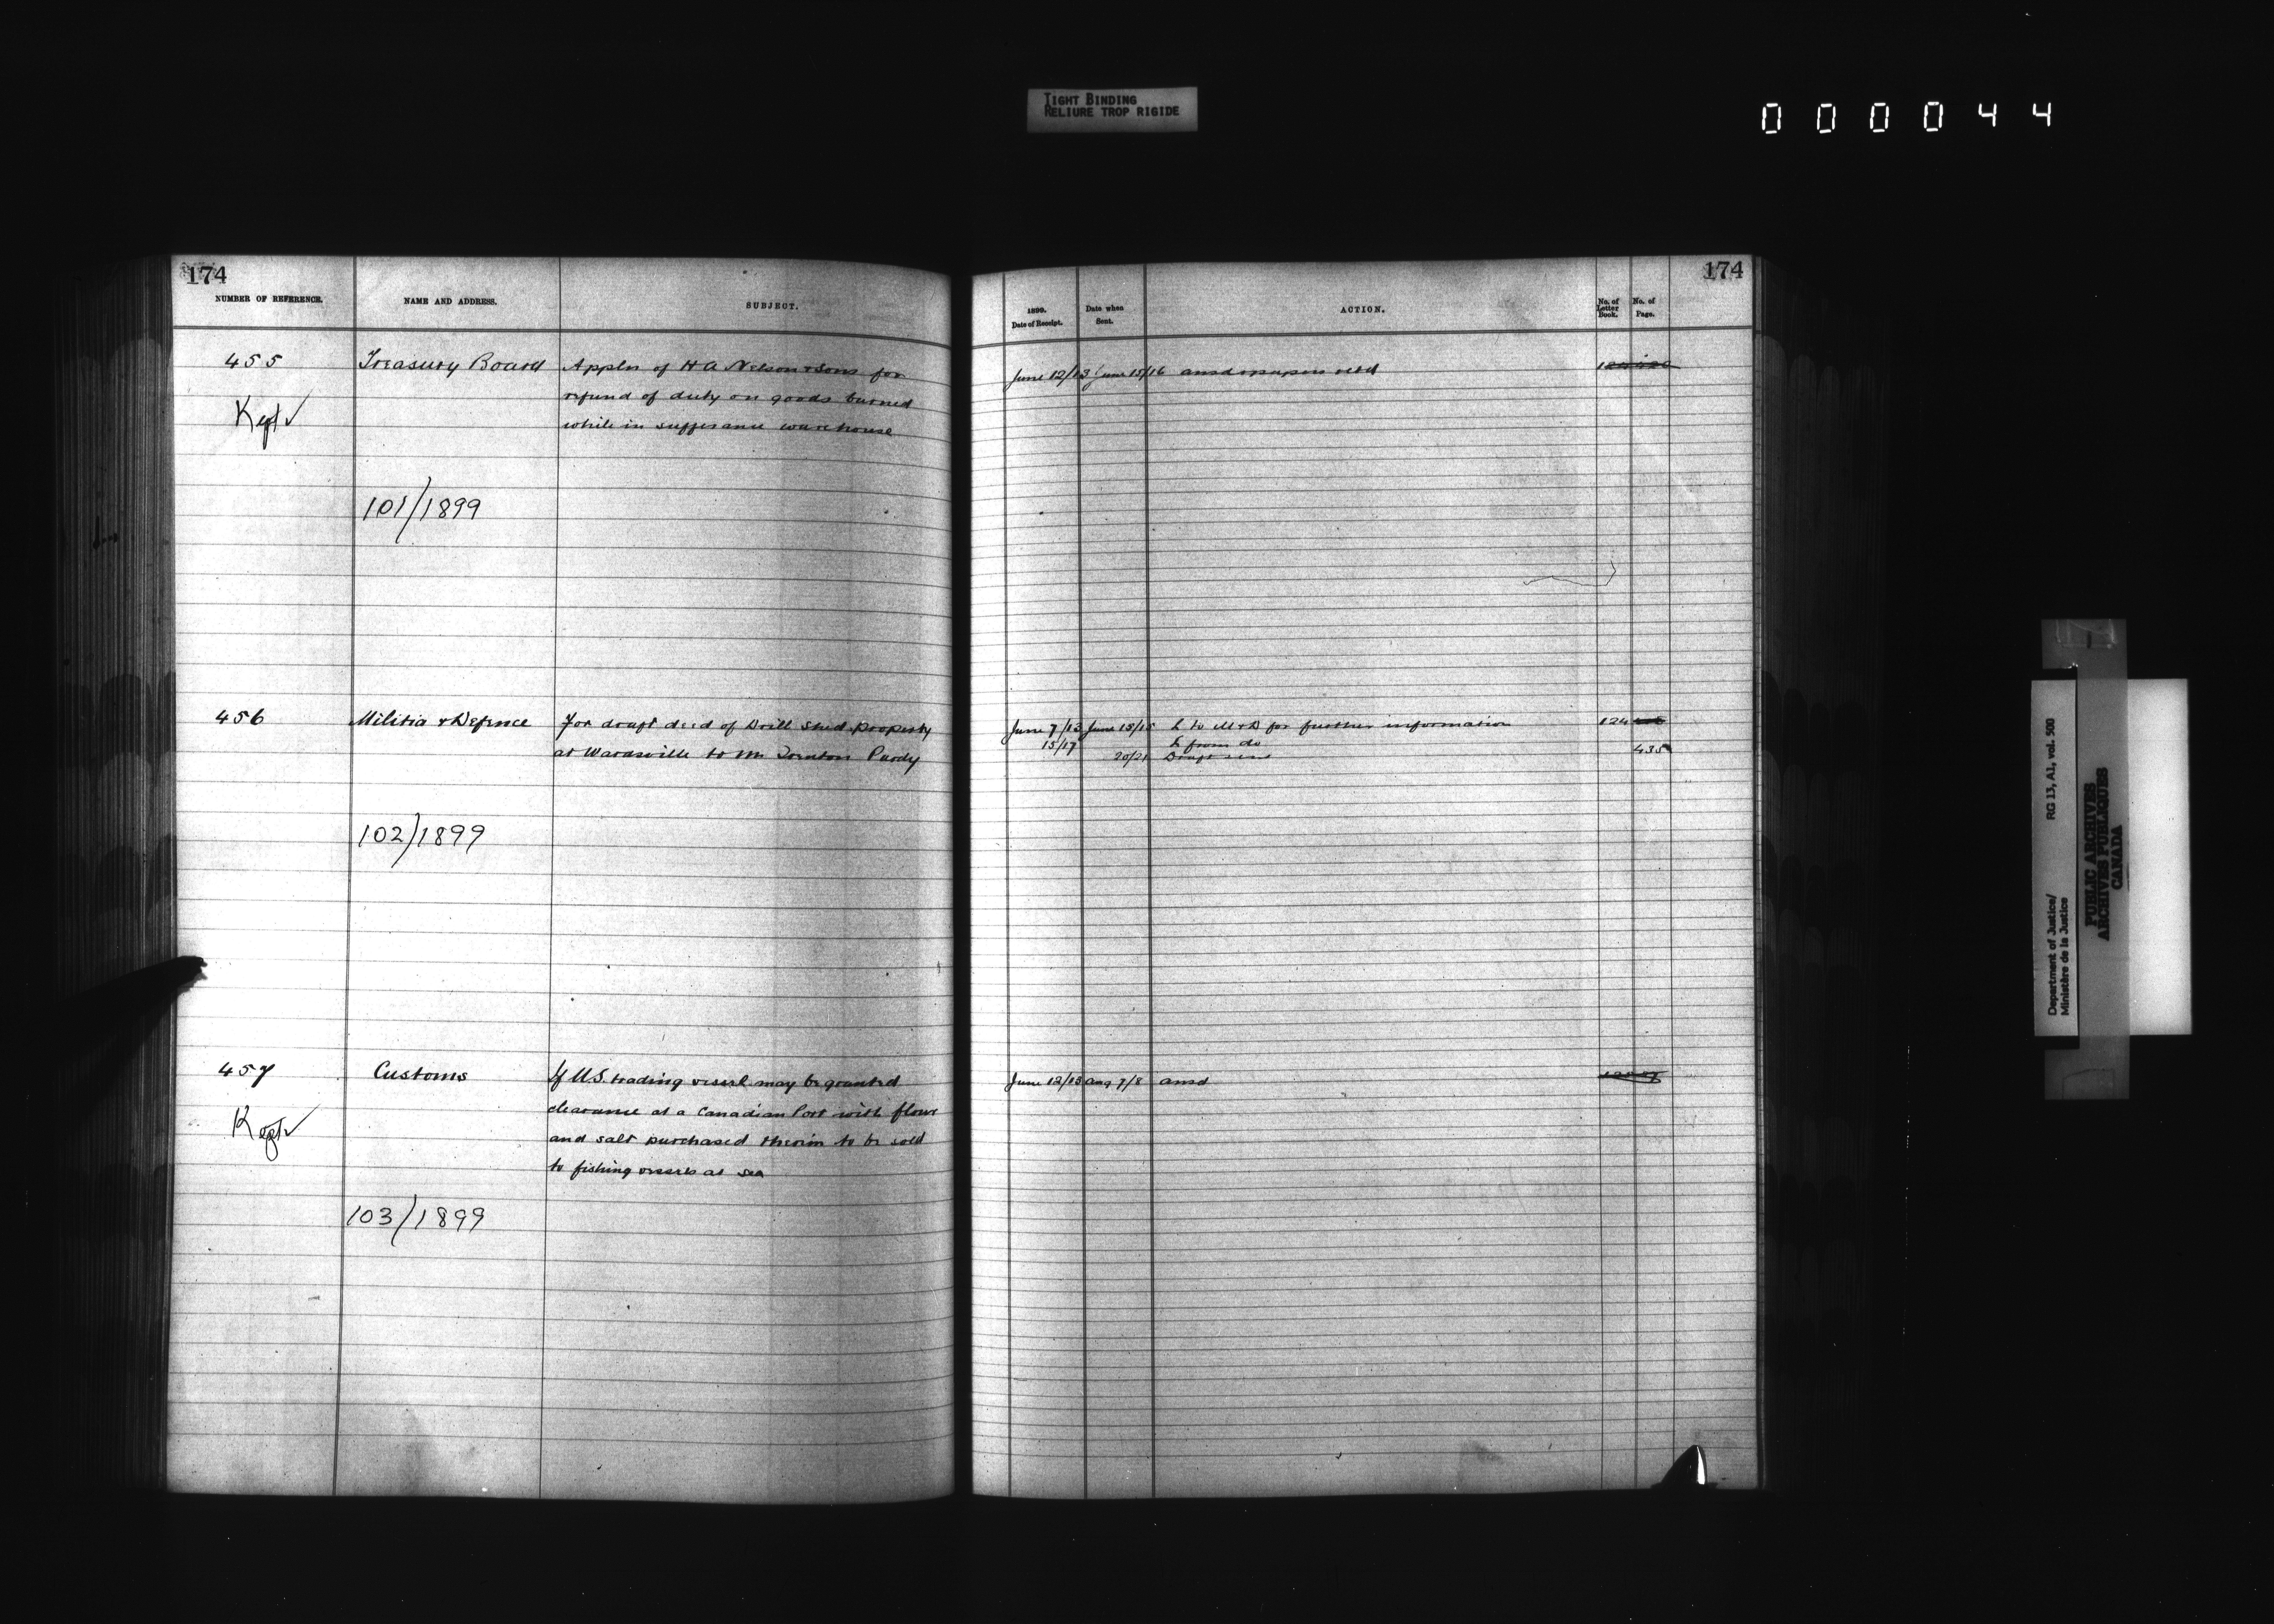 TIGHT BINDING
RELIURE TROP RIGIDE
000044
174
NUMBER OF REFERENCE.
NAME AND ADDRESS.
SUBJECT.
455
Kept ✓
Treasury Board
Appln of H A Nelson & Sons for
refund of duty on goods burned
while in sufferance warehouse
101/1899
456
Militia & Defence
For draft deed of Drill Shed property
at Wardsville to Mr Purdy
102/1899
457
Kept ✓
Customs
If U.S. trading vessel may be granted
clearance at a Canadian Port with flour
and salt purchased therein to be sold
to fishing vessels at sea
103/1899
174
1899.
Date of Receipt.
Date when
Sent.
ACTION.
No. of
Letter
Book.
No. of
Page.
June 12/13 June 15/16 ansd & papers retd
June 7/13 June 15/15 L to M & D for further information 124
15/17 L from do
20/21 Draft sent 435
June 12/13 Aug 7/8 ansd
Department of Justice/
Ministère de la Justice
RG 13, A1, vol. 500
PUBLIC ARCHIVES
ARCHIVES PUBLIQUES
CANADA